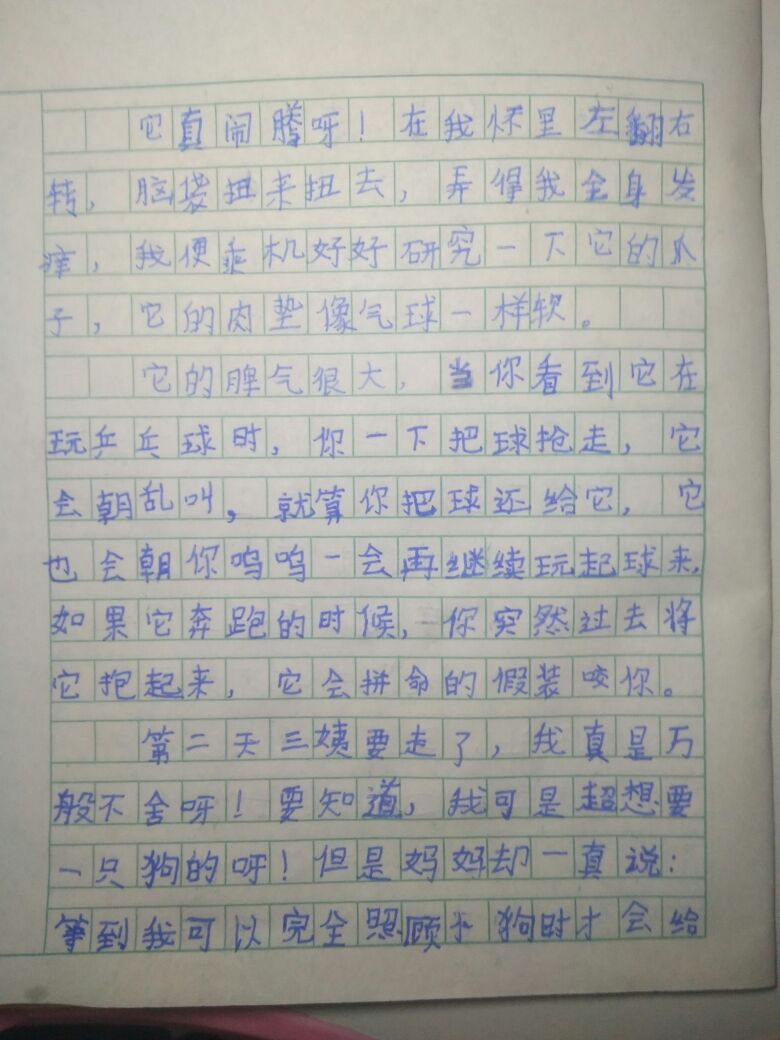 它真闹腾呀！在我怀里左翻右
转，脑袋扭来扭去，弄得我全身发
痒，我便乘机好好研究一下它的爪
子，它的肉垫像气球一样软。
它的脾气很大，当你看到它在
玩乒乓球时，你一下把球抢走，它
会朝乱叫，就算你把球还给它，它
也会朝你呜呜一会再继续玩起球来，
如果它奔跑的时候，你突然过去将
它抱起来，它会拼命的假装咬你。
第二天三姨要走了，我真是万
般不舍呀！要知道，我可是超想要
一只狗的呀！但是妈妈却一真说：
等到我可以完全照顾上狗时才会给